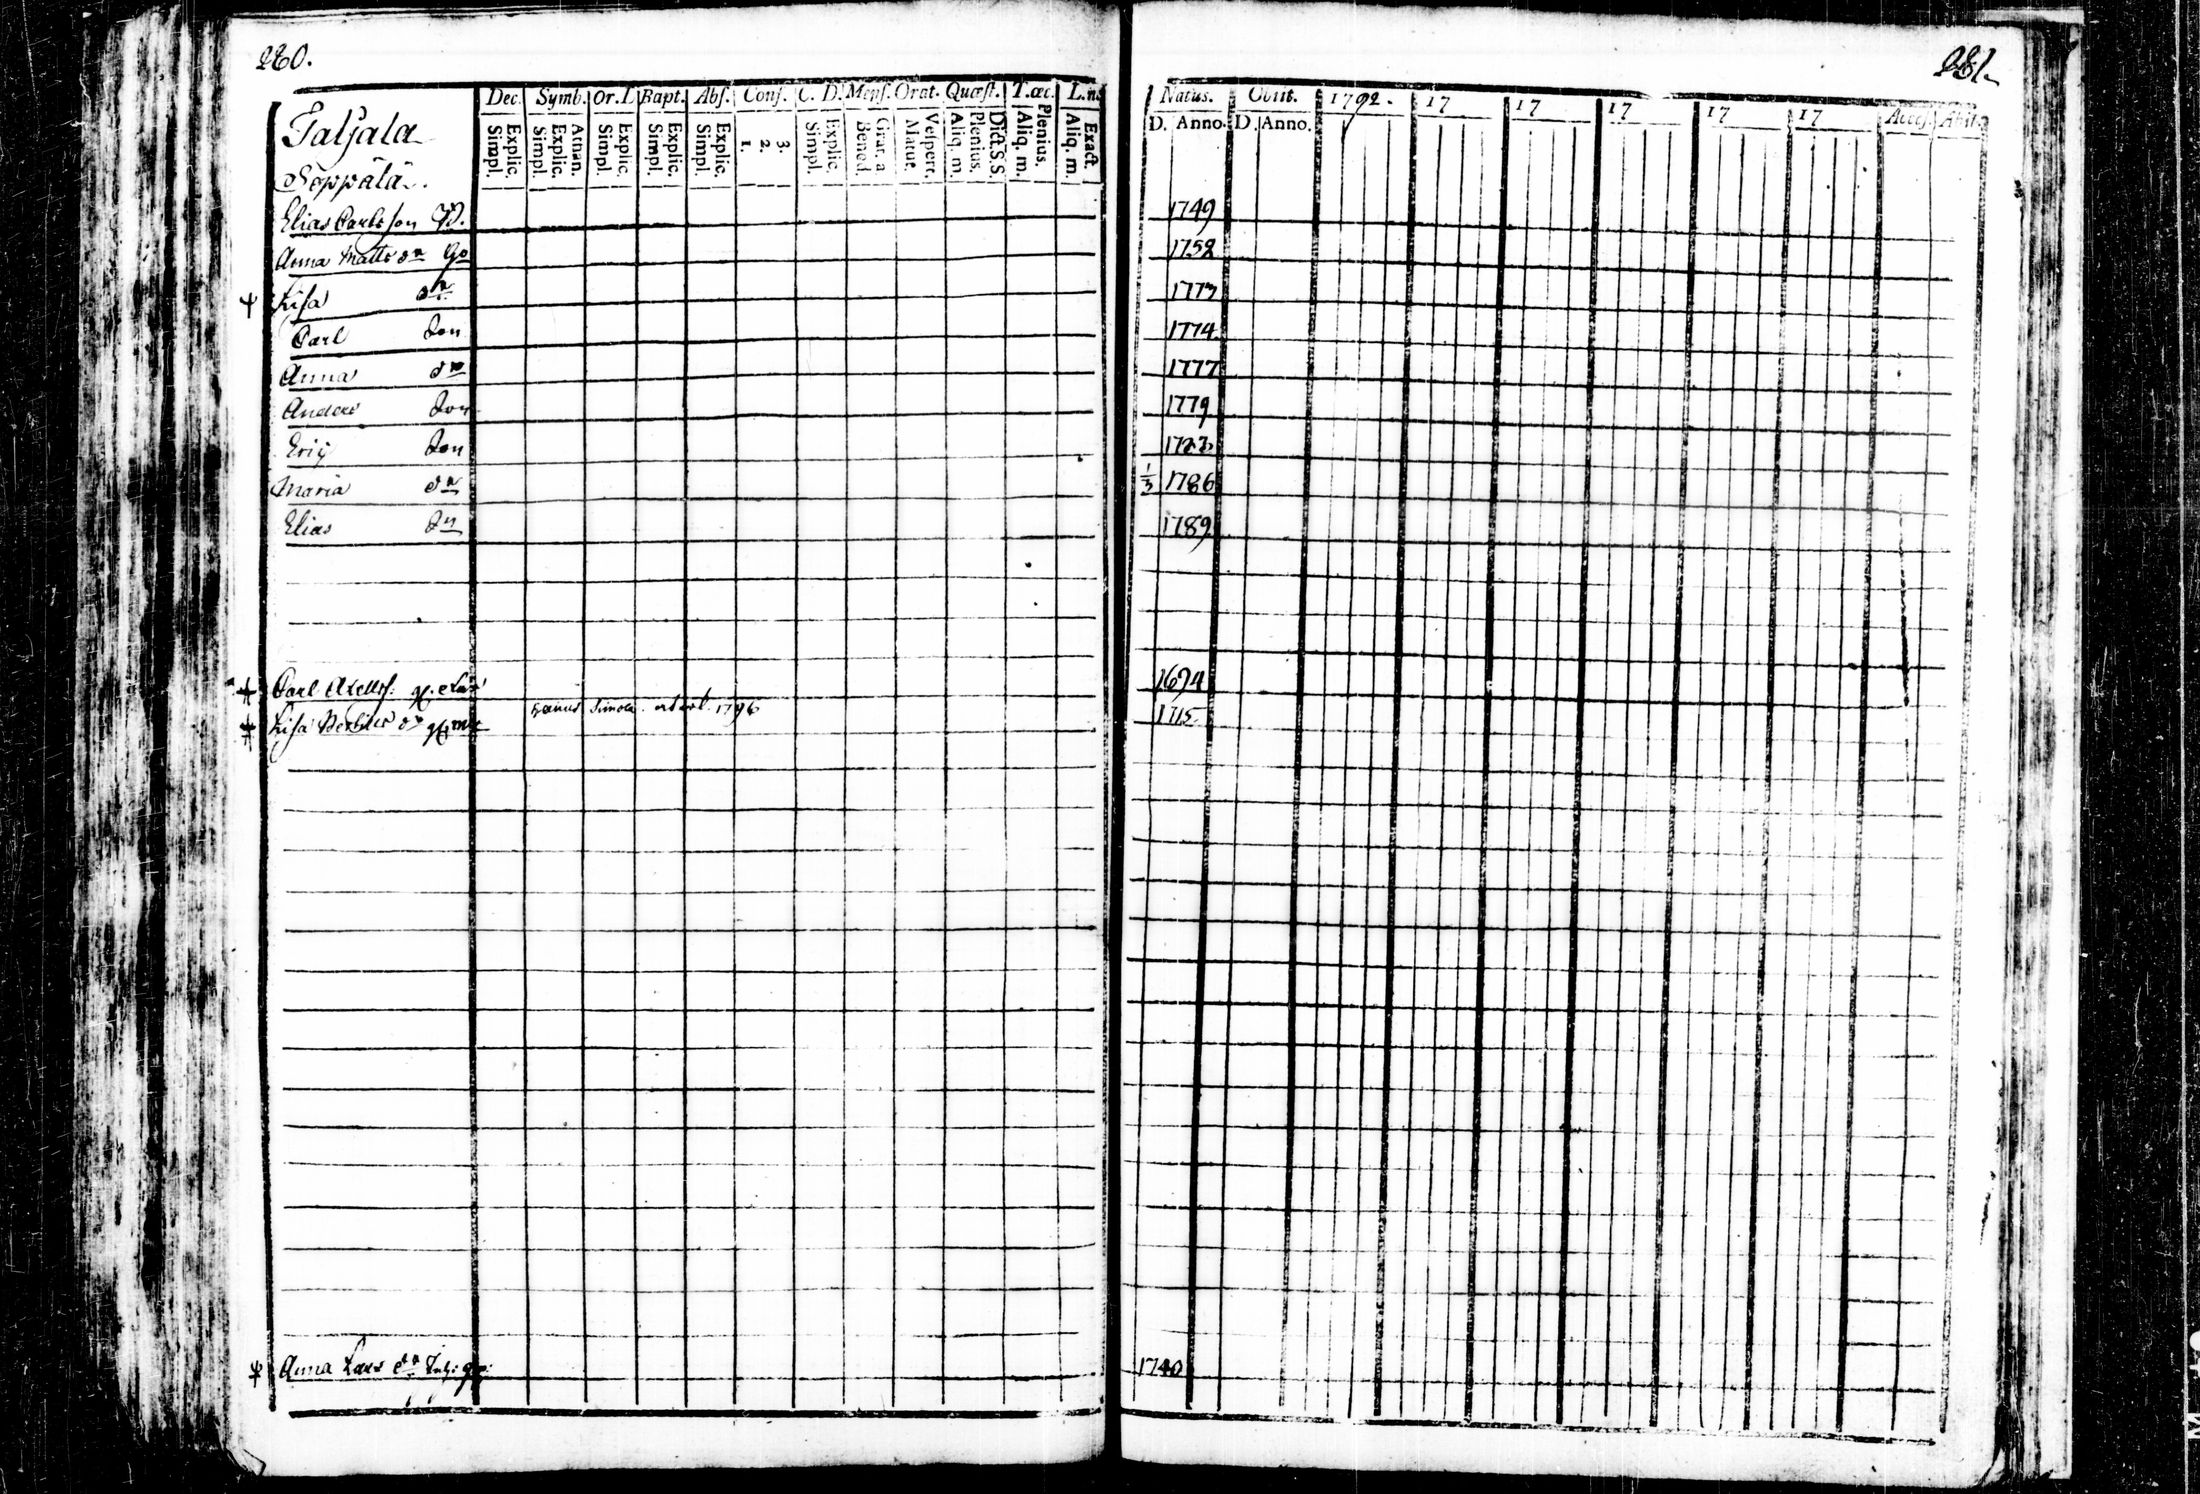 280.
Dec. Symb. Or. D Bapt. Abs. Conf. C. D. Mens. Orat. Quæst. T. œc. L. n.
Simpl. Explic. Simpl. Explic. Athan. Simpl. Explic. Simpl. Explic. Simpl. Explic. 1. 2. 3. Simpl. Explic. Bened. Grat. a Matut. Vespert. Aliq. m. Plenius. Dict. S. S Aliq. m. Plenius. Aliq. m. Exact
Taljala
Seppälä
Elias Carlsson
Anna Matts dr
Lisa dr
Carl Son
Anna dr
Anders Son
Eric Son
Maria dr
Elias Sn
Carl Axells:
Lisa dr
1796
Anna Lars dr
281.
Natus. Obiit. 1792. 17 17 17 17 17 Access. Abit.
D. Anno. D. Anno.
1749
1758
1773
1774
1777
1779
1783
1/3 1786
1789
1694
1715
1740